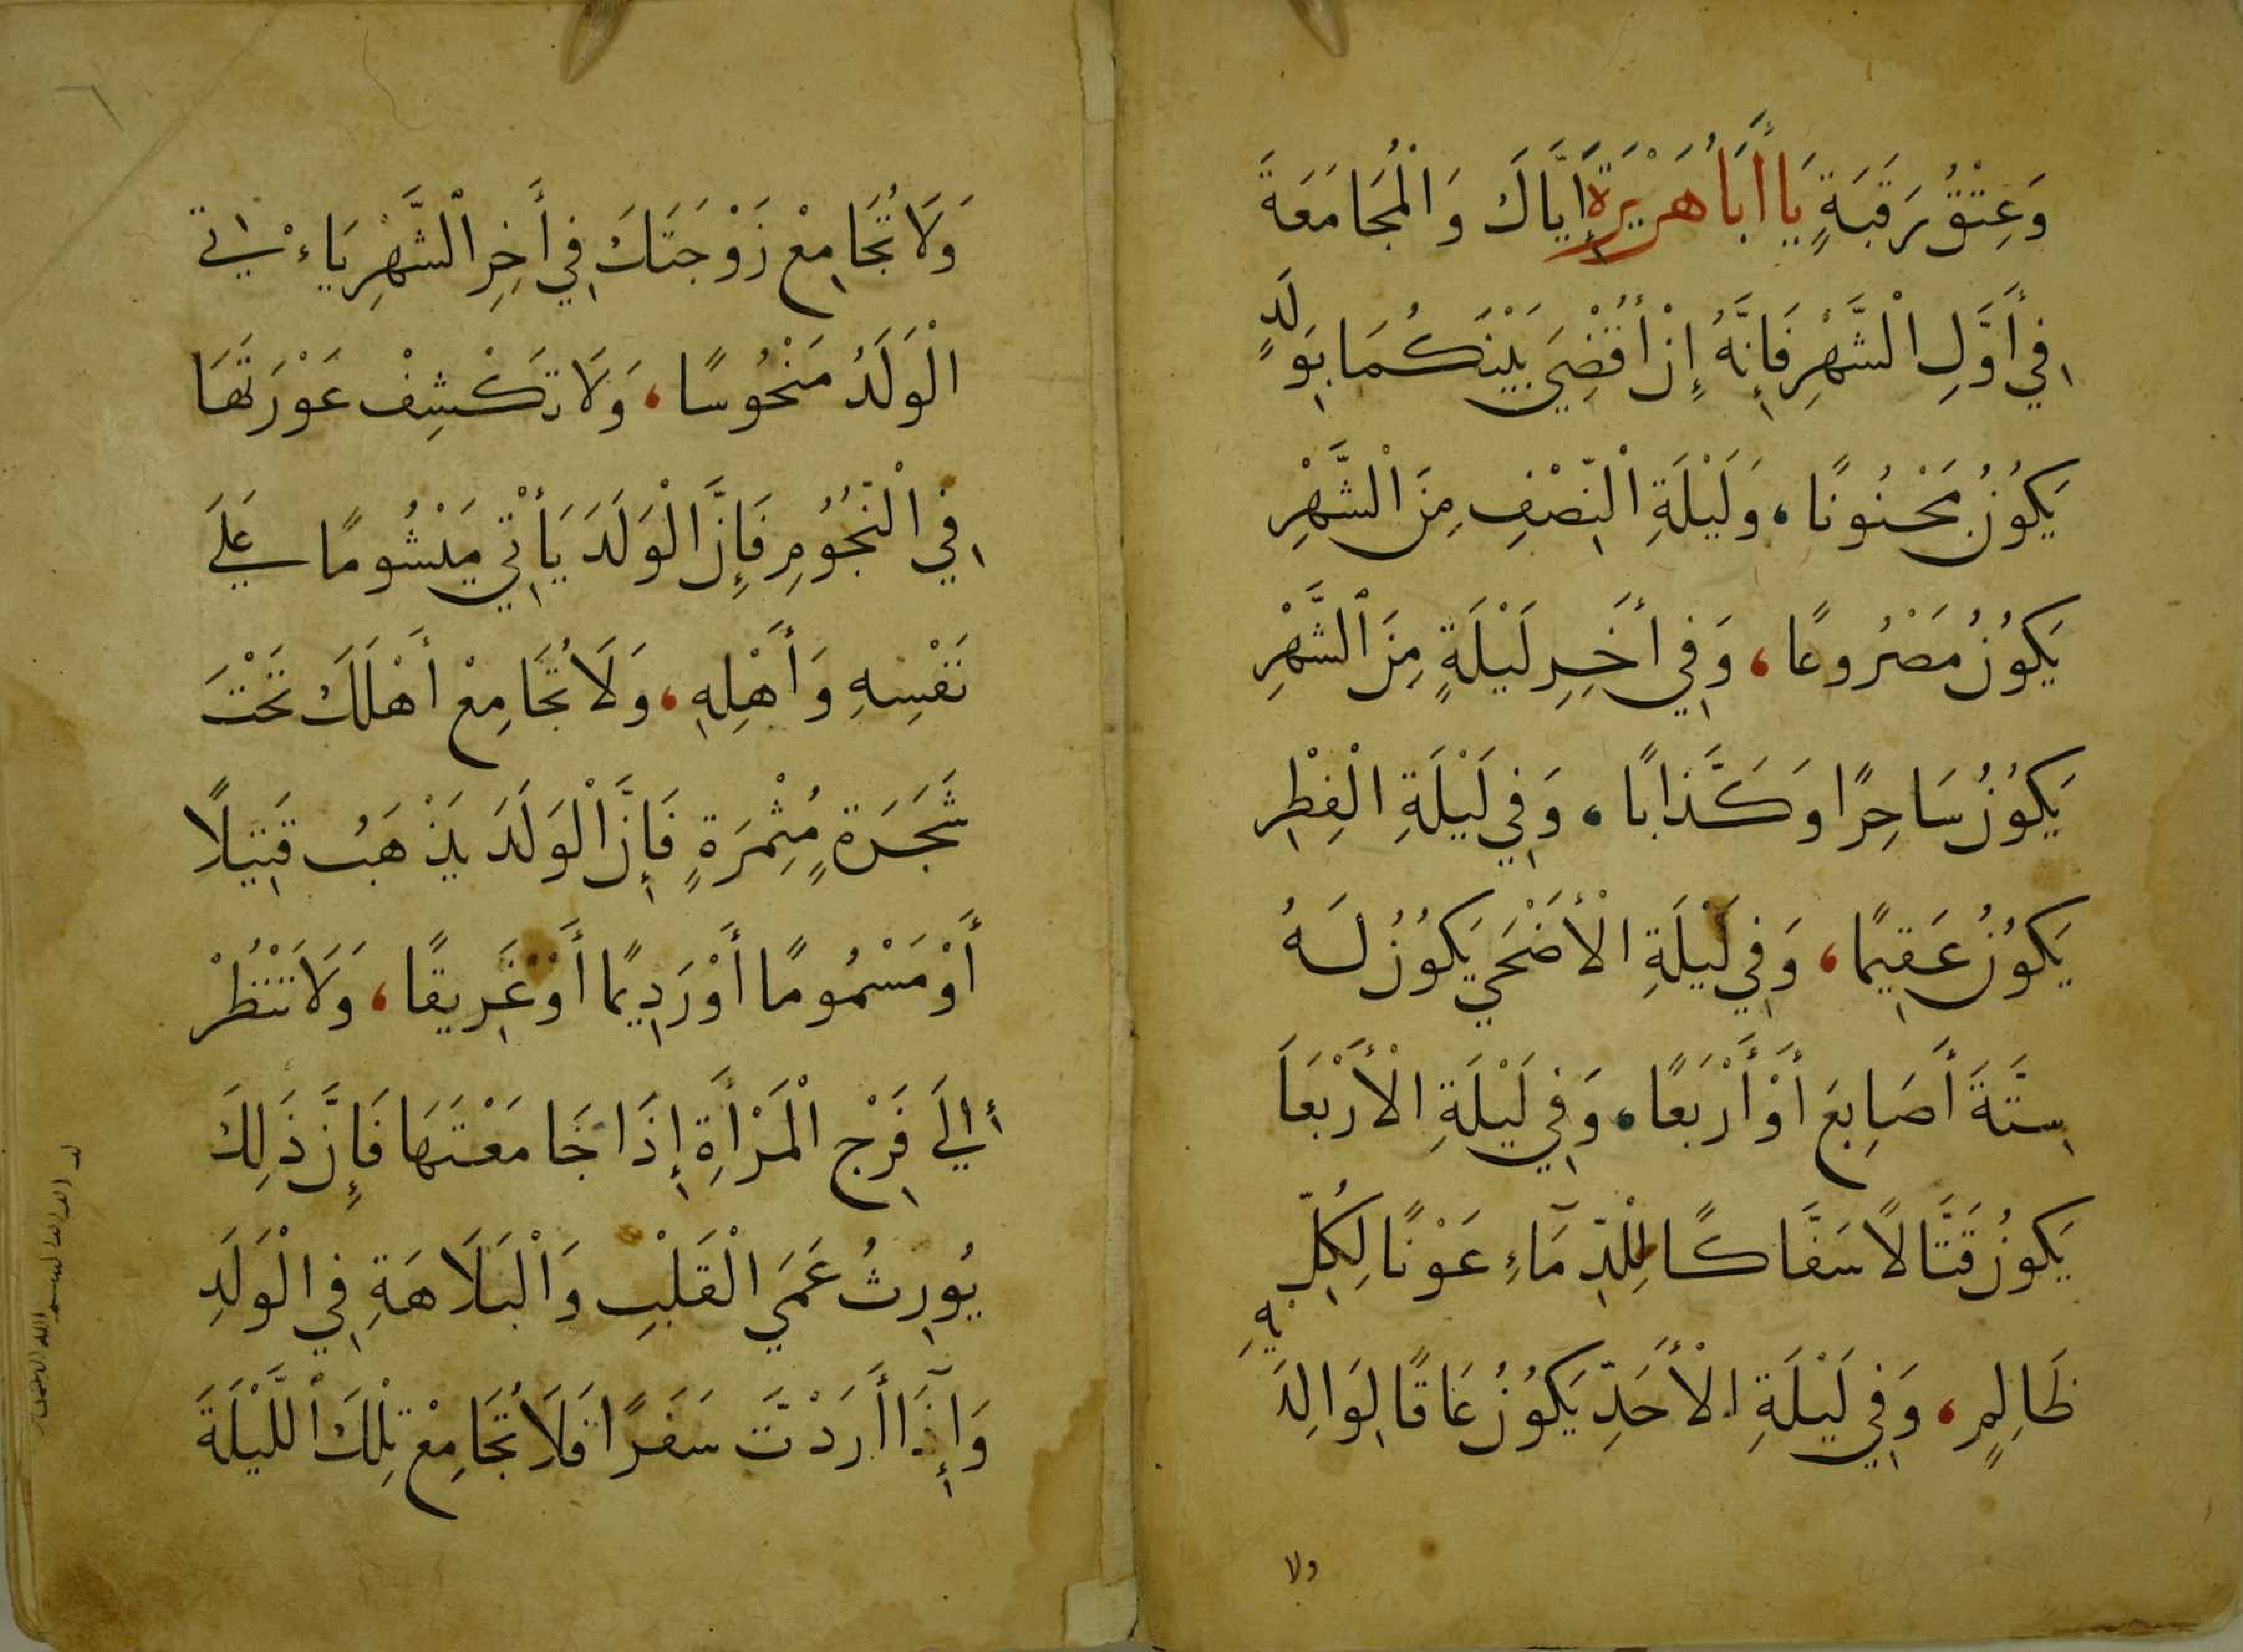 وَعِتْقُ رَقَبَةٍ يَا أَبَا هُرَيْرَةَ إِيَّاكَ وَالْمُجَامَعَةَ
فِي أَوَّلِ الْشَّهْرِ فَإِنَّهُ إِنْ أُقْضِيَ بَيْنَكُمَا بِوَلَدٍ
يَكُوُنُ مَجْنُونًا، وَلَيْلَةِ الْنِّصْفِ مِنَ الْشَّهْرِ
يَكُوُنُ مَصْرُوعًا، وَفِي أَخِرِ لَيْلَةٍ مِنَ الْشَّهْرِ
يَكُوُنُ سَاحِرًا وَكَذَّابًا، وَفِي لَيْلَةِ الْفِطْرِ
يَكُوُنُ عَقِيمًا، وَفِي لَيْلَةِ الْأَضْحَي يَكُوُنُ لَهُ
سِتَّةَ أَصَابِعَ أَوْ أَرْبَعًا، وَفِي لَيْلَةِ الْأَرْبَعَا
يَكُونُ قَتَّالًا سَفَّاكًا لِلْدِّمَآءِ عَوْنًا لِكُلِّ
ظَالِمٍ، وَفِي لَيْلَةِ الْأَحَدِّ يَكُوُنُ عَاقًا لِوَالِدَيْهِ
ولا
وَلَا تُجَامِعْ زَوْجَتَكَ فِي أَخِرِ الْشَّهْرِ يَاءْتِي
الْوَلَدُ مَنْحُوسًا، وَلَا تَكْشِفْ عَوْرَتَهَا
فِي الْنُّجُوُمِ فَإِنَّ الْوَلَدَ يَأْتِي مَيْشُومًا عَلَي
نَفْسِهِ وَأَهْلِهِ، وَلَا تُجَامِعْ أَهْلَكَ تَحْتَ
شَجَرَةٍ مُثْمِرَةٍ فَإِنَّ الْوَلَدَ يَذْهَبُ قَتِيلًا
أَوْ مَسْمُومًا أَوْ رَدِيمًا أَوْ غَرِيقًا، وَلَا تَنْتُظُرْ
إِلَي فَرْجِ الْمَرْأَةِ إِذَا جَامَعْتَهَا فَإِنَّ ذَلِكَ
يُورِثُ عَمَي الْقَلْبِ وَالْبَلَاهَةِ فِي الْوَلَدِ
وَإِذَآ أَرَدْتَ سَفَرًا فَلَا تُجَامِعْ تِلْكَ الْلَّيْلَةَ